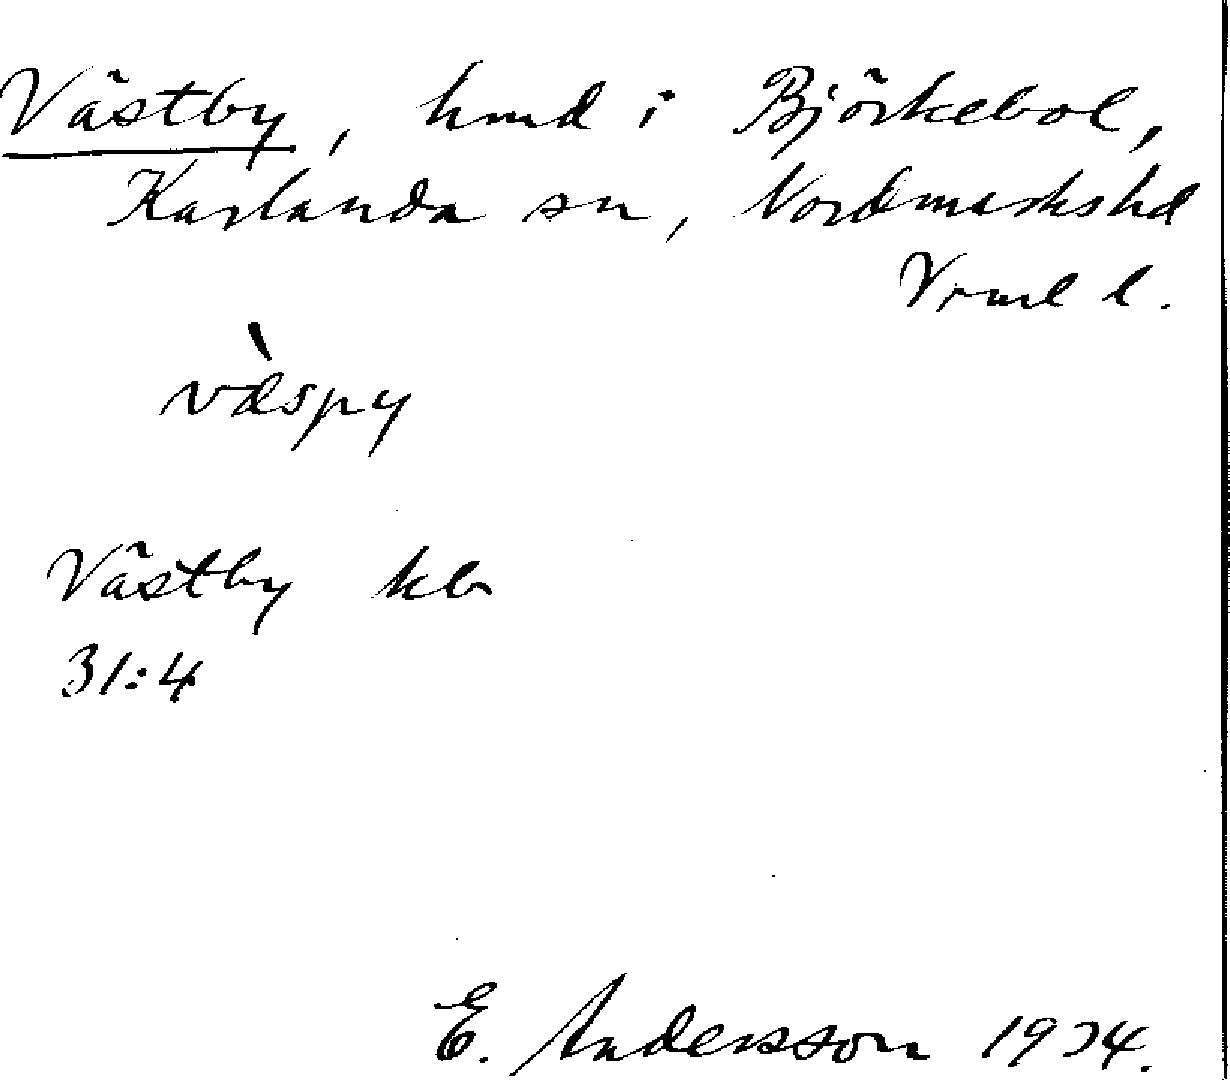 Västby, hmd i Björkebol,
Karlanda sn, Nordmarkshd
Vrml l.
væ̀spy
Västby kb
31:4
E. Andersson 1934.